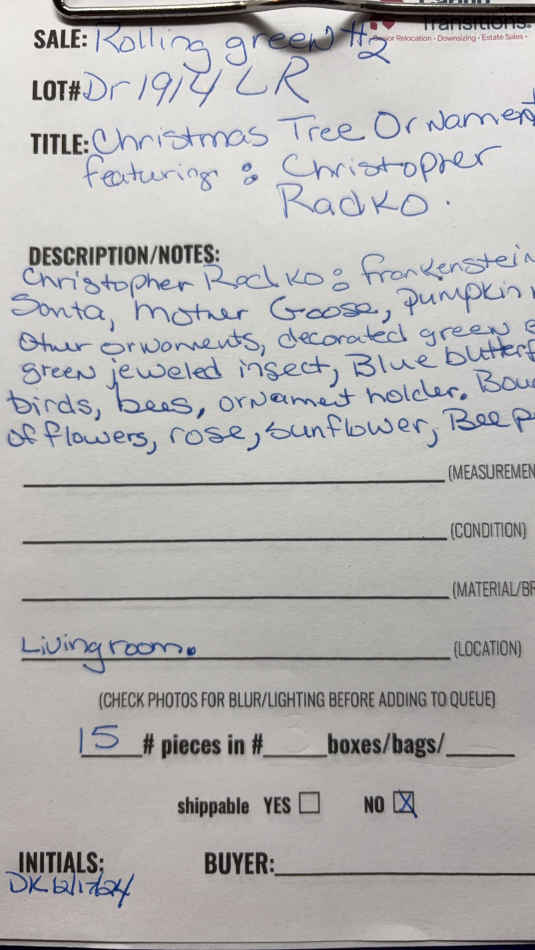 Transitions
Senior Relocation • Downsizing • Estate Sales •
SALE: Rolling green #2
LOT# Dr 1914 LR
TITLE: Christmas Tree Ornament
featuring : Christopher
Radko.
DESCRIPTION/NOTES:
Christopher Radko: Frankenstein
Santa, Mother Goose, pumpkin
other ornaments, decorated green
green jeweled insect, Blue butterf
birds, bees, ornament holder. Bou
of flowers, rose, sunflower, Beep
(MEASUREMEN
(CONDITION)
(MATERIAL/BR
Livingroom. (LOCATION)
(CHECK PHOTOS FOR BLUR/LIGHTING BEFORE ADDING TO QUEUE)
15 # pieces in #______boxes/bags/______
shippable YES ☐ NO ☒
INITIALS: BUYER:
DK 12/17/24